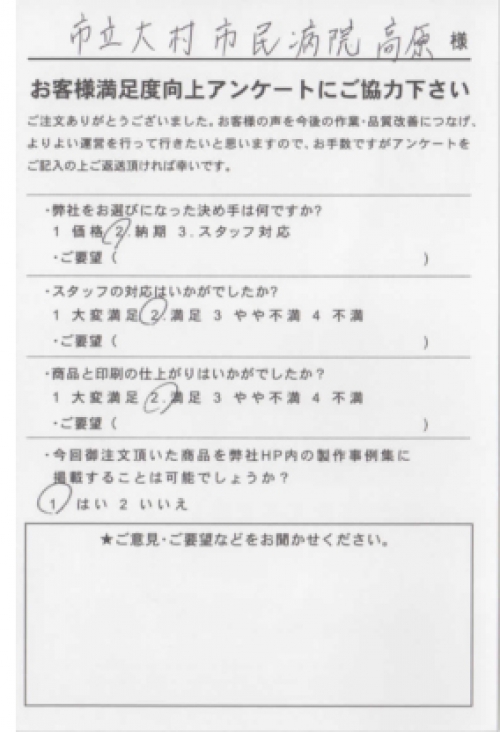 市立大村市民病院 高原 様
お客様満足度向上アンケートにご協力下さい
ご注文ありがとうございました。お客様の声を今後の作業・品質改善につなげ、
よりよい運営を行って行きたいと思いますので、お手数ですがアンケートを
ご記入の上ご返送頂ければ幸いです。
・弊社をお選びになった決め手は何ですか?
1 価格 2.納期 3.スタッフ対応
・ご要望( )
・スタッフの対応はいかがでしたか?
1 大変満足 2.満足 3 やや不満 4 不満
・ご要望( )
・商品と印刷の仕上がりはいかがでしたか?
1 大変満足 2.満足 3 やや不満 4 不満
・ご要望( )
・今回御注文頂いた商品を弊社HP内の製作事例集に
掲載することは可能でしょうか?
1 はい 2 いいえ
★ご意見・ご要望などをお聞かせください。